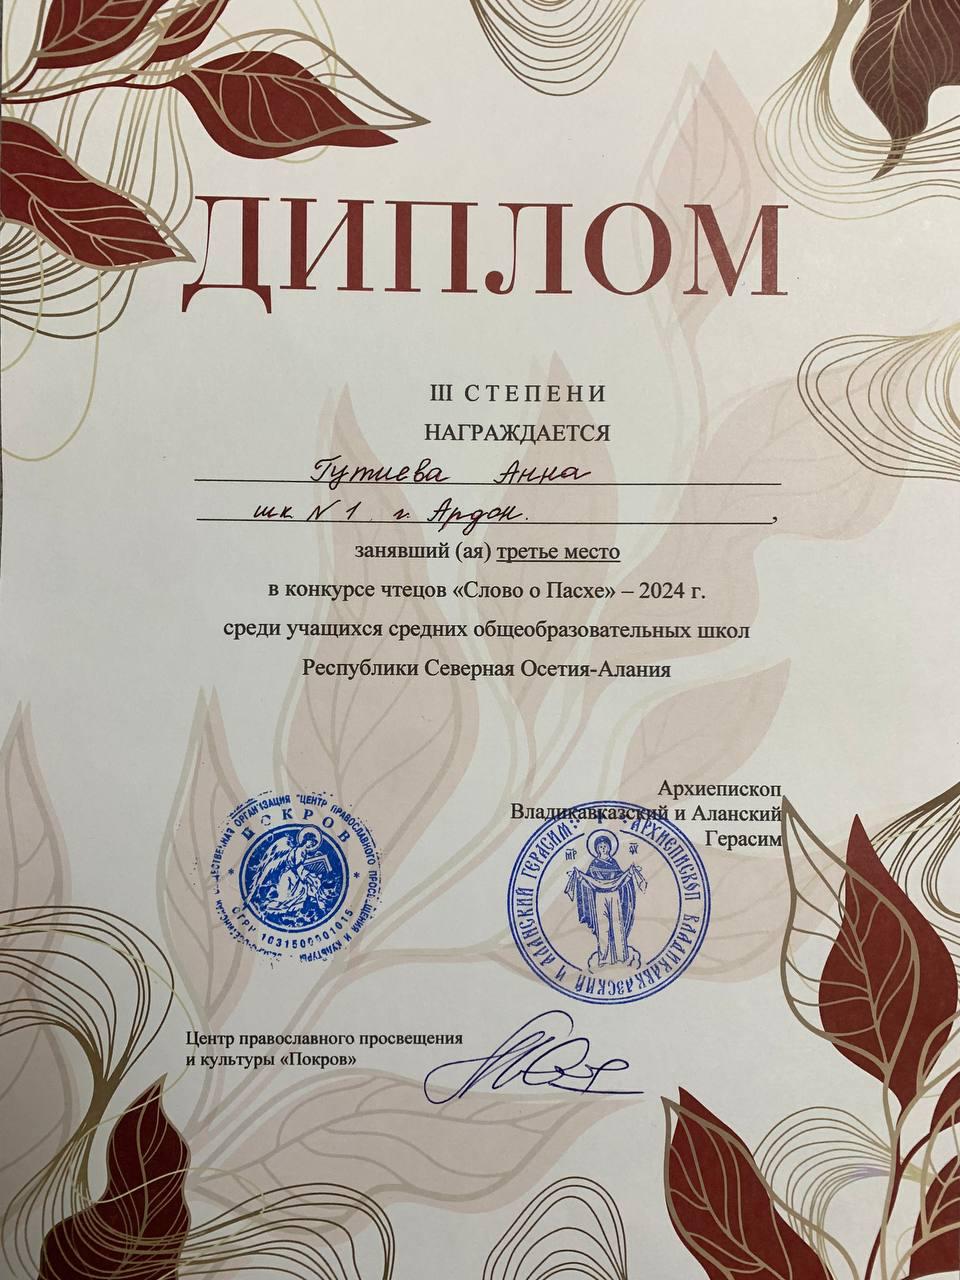 ДИПЛОМ
III СТЕПЕНИ
НАГРАЖДАЕТСЯ
Гутиева Анна
шк N 1 г. Ардон.
,
занявший (ая) третье место
в конкурсе чтецов «Слово о Пасхе» – 2024 г.
среди учащихся средних общеобразовательных школ
Республики Северная Осетия-Алания
Архиепископ
Владикавказский и Аланский
Герасим
ОБЩЕСТВЕННАЯ ОРГАНИЗАЦИЯ "ЦЕНТР ПРАВОСЛАВНОГО ПРОСВЕЩЕНИЯ И КУЛЬТУРЫ
ПОКРОВ
АРХИЕПИСКОП ВЛАДИКАВКАЗСКИЙ И АЛАНСКИЙ ГЕРАСИМ
Центр православного просвещения
и культуры «Покров»